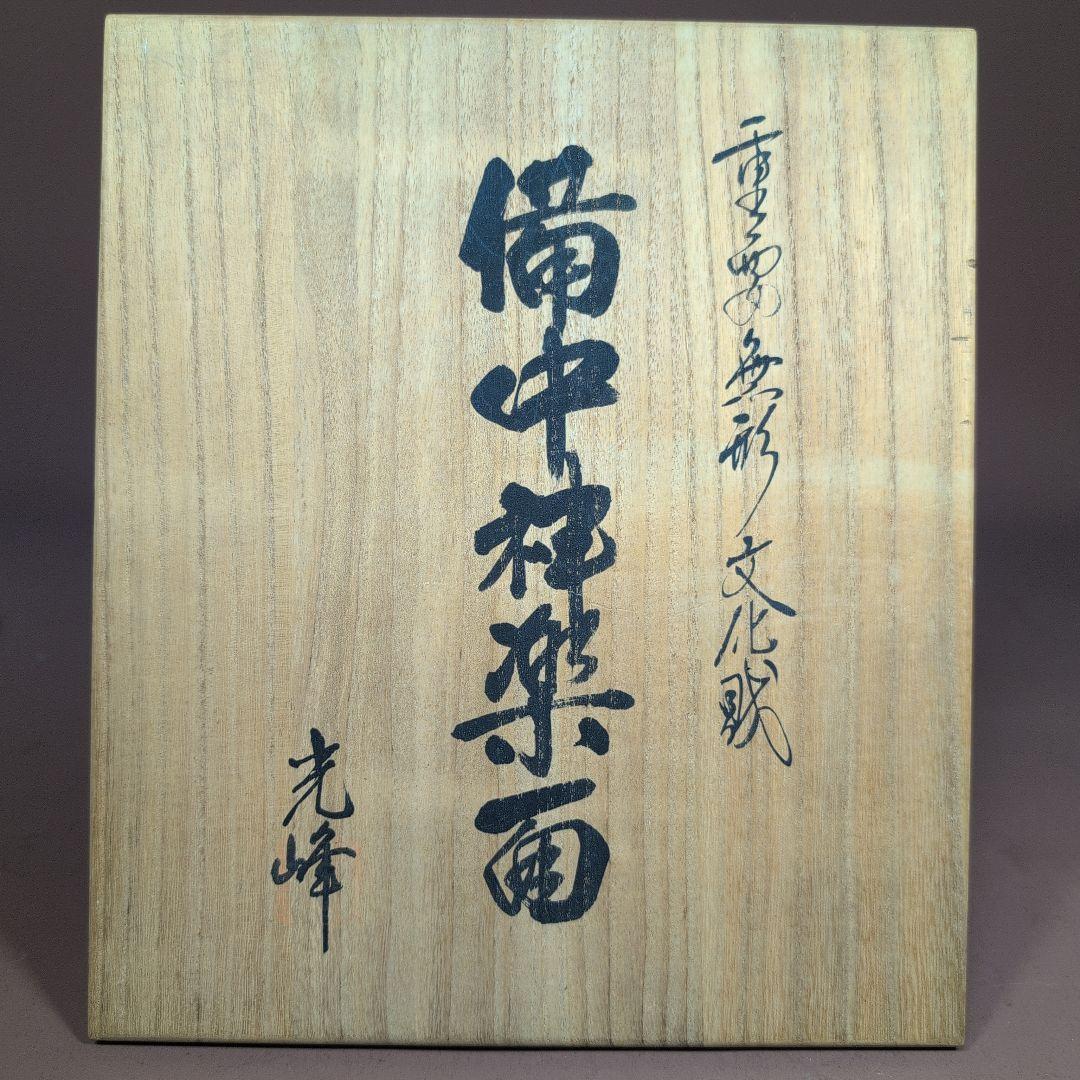 重要無形文化財
備中神楽面
光峰